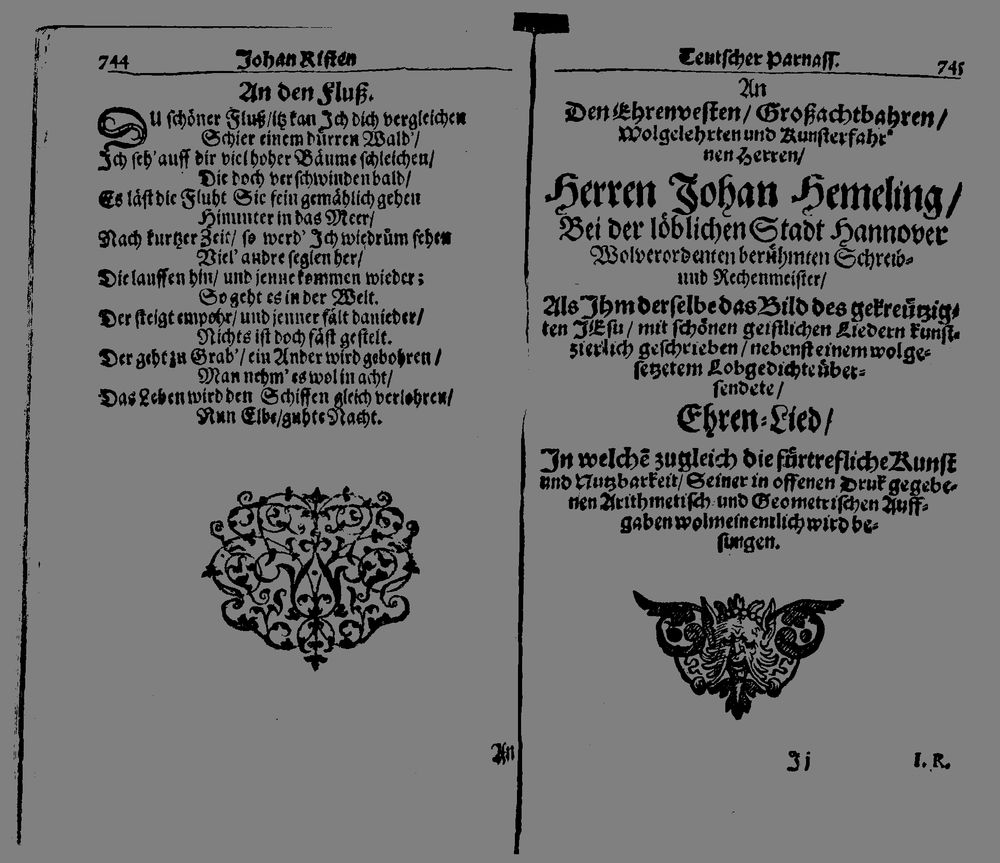 744 Johan Risten
An den Fluß.
DU schöner Fluß/itz kan Jch dich vergleichen
Schier einem dürren Wald'/
Jch seh' auff dir viel hoher Bäume schleichen/
Die doch verschwinden bald/
Es läst die Fluht Sie fein gemählich gehen
Hinunter in das Meer/
Nach kurtzer Zeit/ so werd' Jch wiedrüm sehen
Viel' andre seglen her/
Die lauffen hin/ und jenne kommen wieder:
So geht es in der Welt.
Der steigt empohr/ und jenner fält danieder/
Nichts ist doch fäst gestelt.
Der geht zu Grab'/ ein Ander wird gebohren/
Man nehm' es wol in acht/
Das Leben wird den Schiffen gleich verlohren/
Nun Elbe/guhte Nacht.
An
Teutscher Parnass. 745
An
Den Ehrenvesten/ Großachtbahren/
Wolgelehrten und Kunsterfahr-
nen Herren/
Herren Johan Hemeling/
Bei der löblichen Stadt Hannover
Wolverordenten berühmten Schreib-
und Rechenmeister/
Als Jhm derselbe das Bild des gekreützig-
ten JEsu/ mit schönen geistlichen Liedern kunst-
zierlich geschrieben/ nebenst einem wolge-
setzetem Lobgedichte über-
sendete/
Ehren-Lied/
Jn welchē zugleich die fürtrefliche Kunst
und Nutzbarkeit/ Seiner in offenen Druk gegebe-
nen Arithmetisch- und Geometrischen Auff-
gaben wolmeinentlich wird be-
sungen.
Jj I. R.